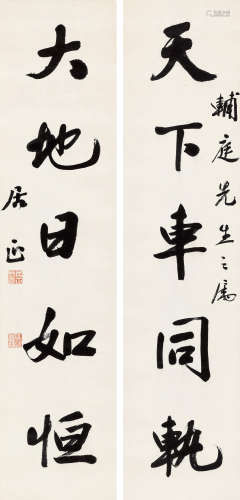 天下車同軌
輔庭先生之屬
大地日如恒
居正